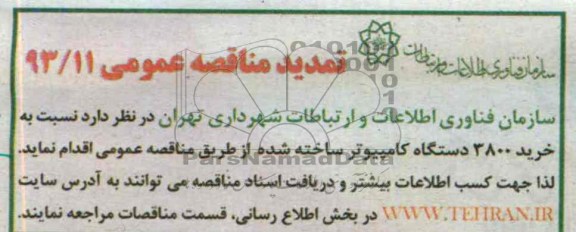 سازمان فناوری اطلاعات و ارتباطات
تمدید مناقصه عمومی ۹۳/۱۱
سازمان فناوری اطلاعات و ارتباطات شهرداری تهران در نظر دارد نسبت به
خرید ۳۸۰۰ دستگاه کامپیوتر ساخته شده از طریق مناقصه عمومی اقدام نماید.
لذا جهت کسب اطلاعات بیشتر و دریافت اسناد مناقصه می توانند به آدرس سایت
WWW.TEHRAN.IR در بخش اطلاع رسانی، قسمت مناقصات مراجعه نمایند.
ParsNamadData